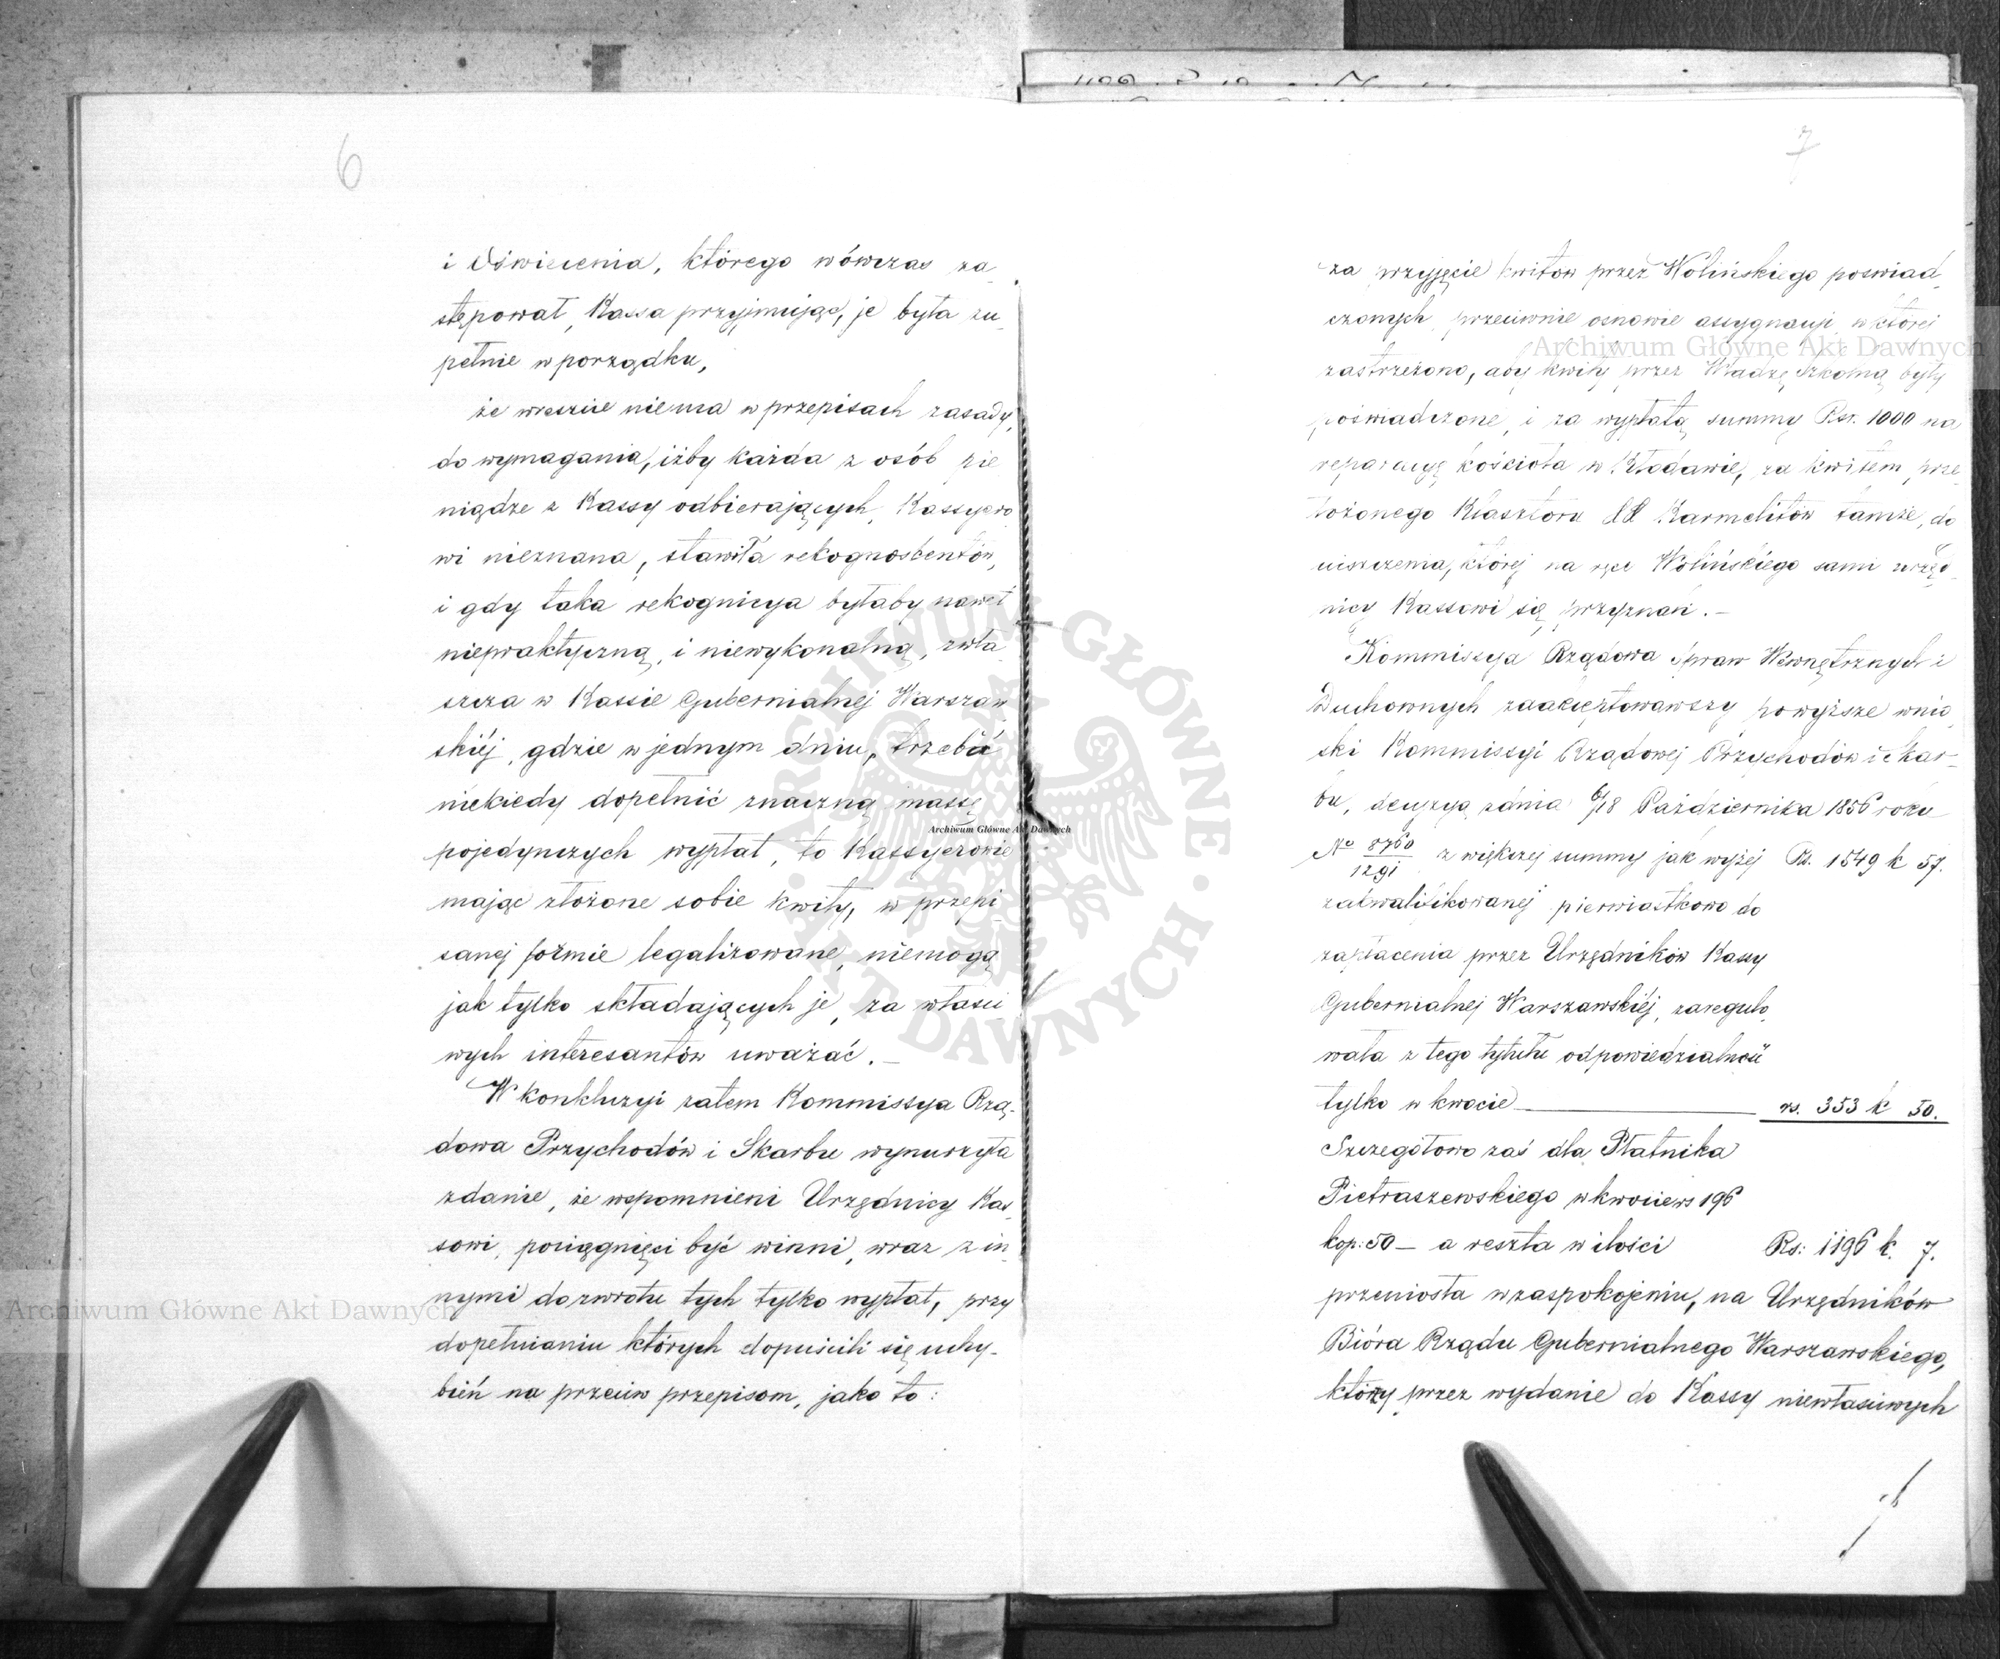 6
i Oświecenia, którego wówczas za-
stępował, Kassa przyjmując, je była zu-
pełnie w porządku,
że wreszcie niema w przepisach zasady,
do wymagania, iżby każda z osób pie
niądze z Kassy odbierających, Kassyero
wi nieznana, stawiła rekognoscentów,
i gdy taka rekognicya byłaby nawet
niepraktyczną, i niewykonalną, zwła
szcza w Kassie Gubernialnej Warszaw
skiéj, gdzie w jednym dniu, trzeba
niekiedy dopełnić znaczną massę
pojedynczych wypłat, to Kassyerowie
mając złożone sobie kwity, w przepi
sanej formie legalizowane, niemogą
jak tylko składających je, za właści
wych interesantów uważać. —
W konkluzyi zatem Kommissya Rzą-
dowa Przychodów i Skarbu wynurzyła
zdanie, że wspomnieni Urzędnicy Kas-
sowi, pociągnięci być winni, wraz z in-
nymi do zwrotu tych tylko wypłat, przy
dopełnianiu których dopuścili się uchy-
bień na przeciw przepisom, jako to:
7
za przyjęcie kwitów przez Wolińskiego poswiad-
czonych, przeciwnie osnowie assygnacyi, w której
zastrzeżono, aby kwity przez Władzę Szkolną były
poświadczone, i za wypłatę summy Rsr. 1000 na
reparacyę kościoła w Kłodawie, za kwitem prze-
łożonego Klasztoru Karmelitów tamże, do
uiszczenia, której na ręce Wolińskiego sami urzęd-
nicy Kassowi się przyznali. —
Kommissya Rządowa Spraw Wewnętrznych i
Duchownych zaakceptowawszy powyższe wnio-
ski Kommissyi Rządowej Przychodów i Skar-
bu, decyzyą z dnia 6/18 Października 1856 roku
No 8760/1291 z większej summy jak wyżej Rs. 1549 k 57.
zakwalifikowanej pierwiastkowo do
zapłacenia przez Urzędników Kassy
Gubernialnej Warszawskiéj, zaregulo-
wała z tego tytułu odpowiedzialność
tylko w kwocie — rs. 353 k 50.
Szczegółowo zaś dla Płatnika
Pietraszewskiego w kwocie rs 196
kop: 50 — a reszta w ilości Rs: 1196 k. 7.
przeniosła w zaspokojeniu, na Urzędników
Bióra Rządu Gubernialnego Warszawskiego,
którzy przez wydanie do Kassy niewłaściwych
Archiwum Główne Akt Dawnych
Archiwum Główne Akt Dawnych
Archiwum Główne Akt Dawnych
ARCHIWUM GŁÓWNE AKT DAWNYCH